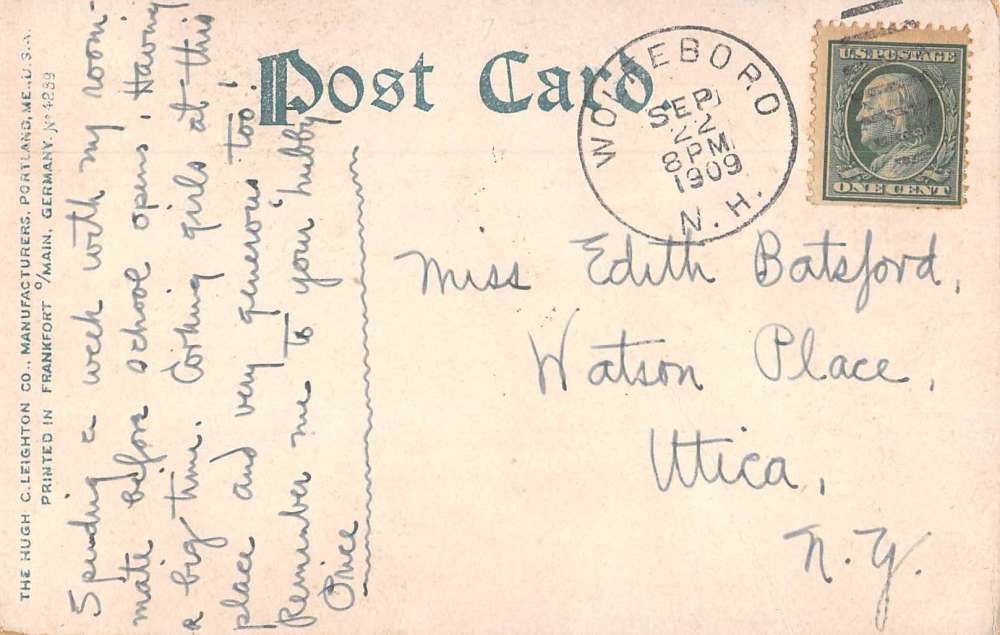 THE HUGH C. LEIGHTON CO., MANUFACTURERS, PORTLAND, ME., U.S.A.
PRINTED IN FRANKFORT O/MAIN, GERMANY. No 4239
Post Card.
WOLFEBORO
SEP
22
8 PM
1909
N. H.
U.S. POSTAGE
ONE CENT
Spending a week with my room-
mate before school opens. Having
a big time. Corking girls at this
place and very generous too!
Remember me to your "hubby"
Miss Edith Batsford,
Watson Place,
Utica,
N. Y.